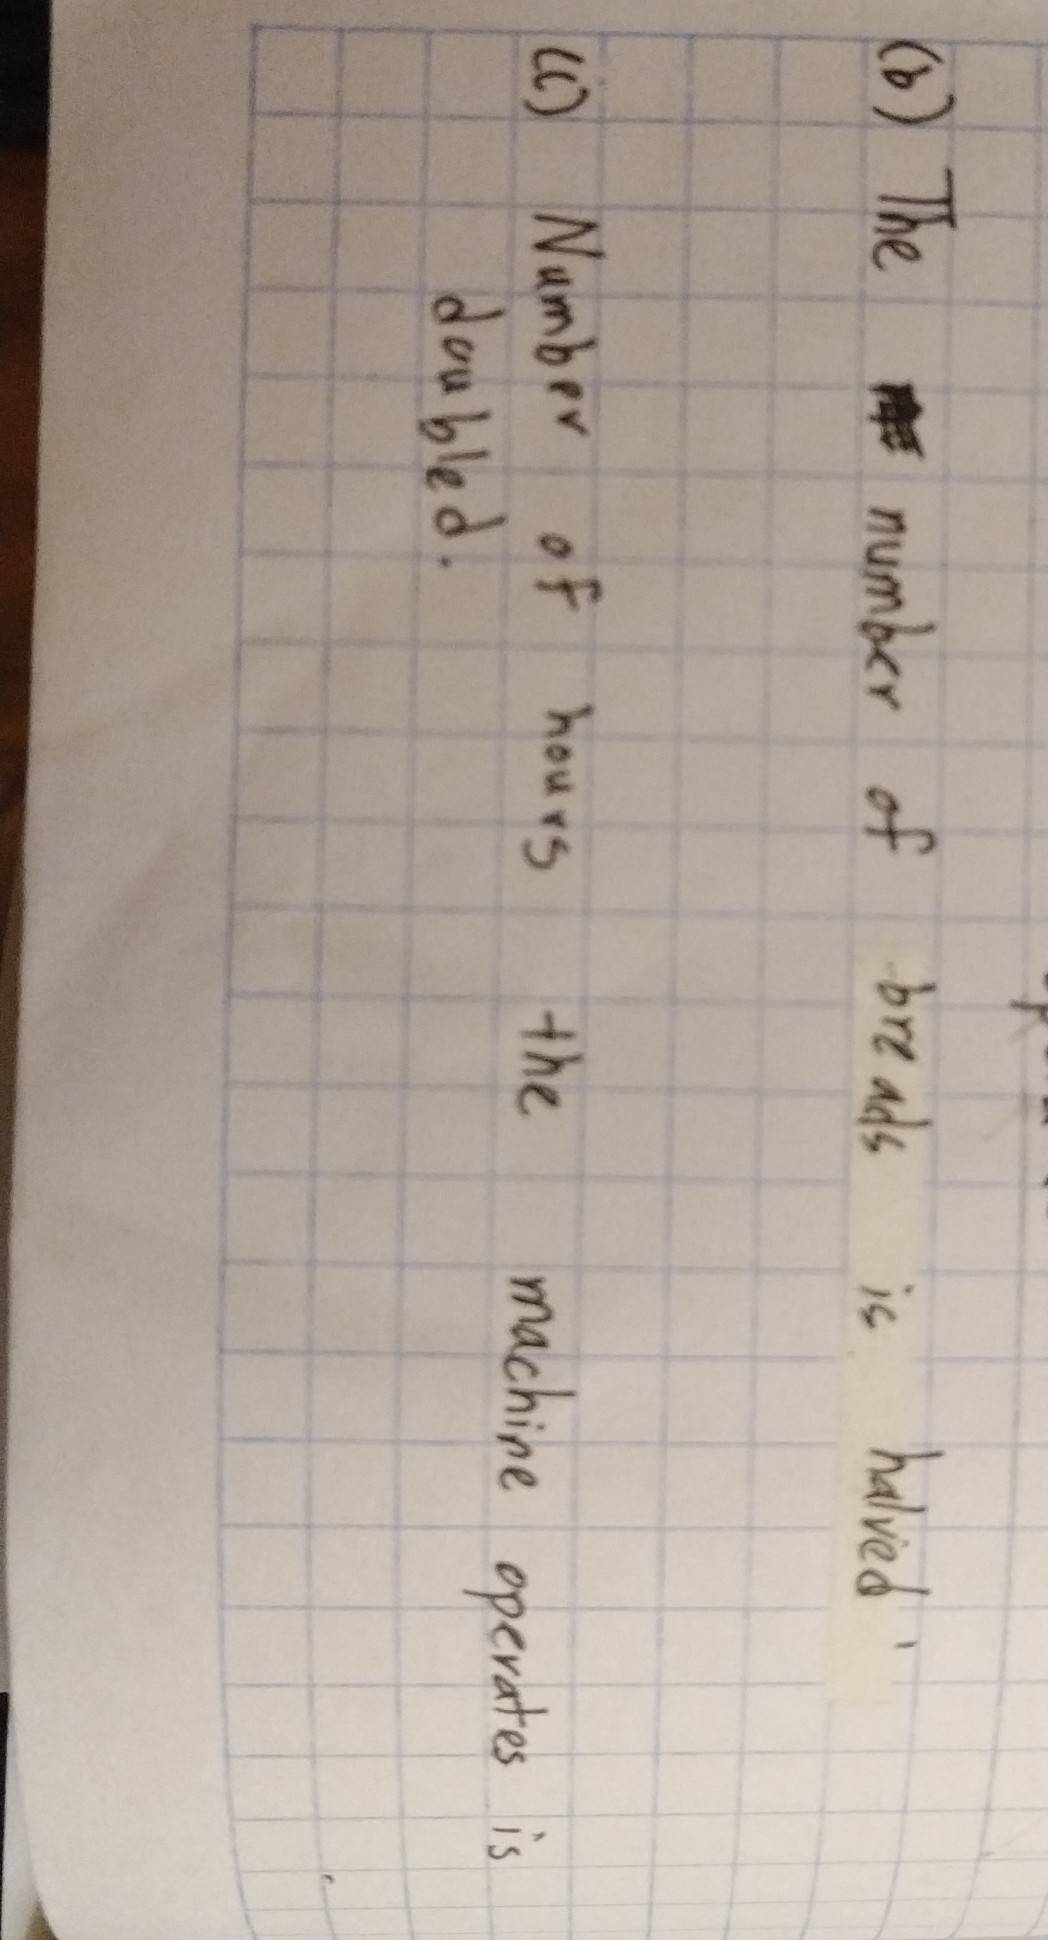 (b) The number of breads is halved
(c) Number of hours the machine operates is
doubled.